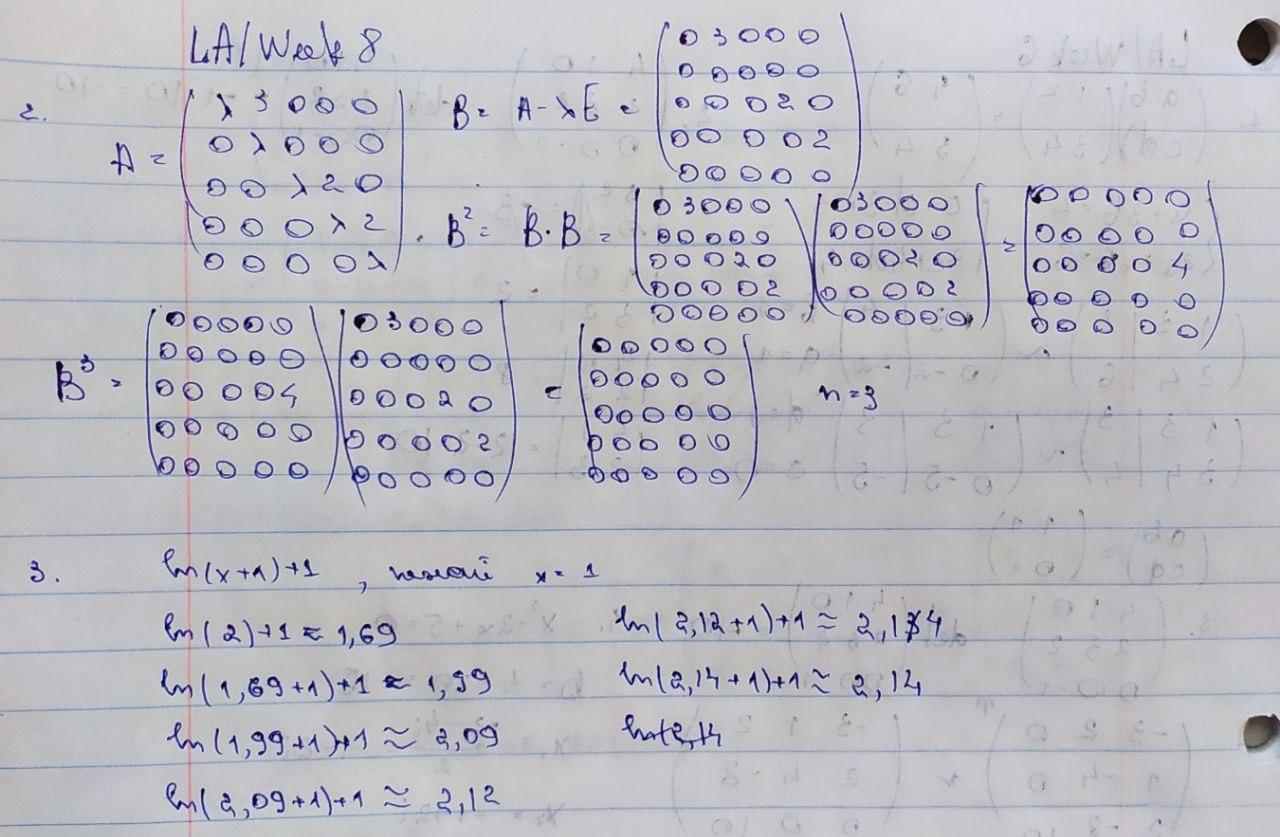 LA/Week 8
2. A = ( λ 3 0 0 0 B = A - λE = ( 0 3 0 0 0
0 λ 0 0 0 0 0 0 0 0
0 0 λ 2 0 0 0 0 2 0
0 0 0 λ 2 0 0 0 0 2
0 0 0 0 λ ) 0 0 0 0 0 )
B² = B·B = ( 0 3 0 0 0 ) ( 0 3 0 0 0 ) = ( 0 0 0 0 0
0 0 0 0 0 0 0 0 0 0 0 0 0 0 0
0 0 0 2 0 0 0 0 2 0 0 0 0 0 4
0 0 0 0 2 0 0 0 0 2 0 0 0 0 0
0 0 0 0 0 0 0 0 0 0 0 0 0 0 0 )
B³ = ( 0 0 0 0 0 ) ( 0 3 0 0 0 ) = ( 0 0 0 0 0 ) n = 3
0 0 0 0 0 0 0 0 0 0 0 0 0 0 0
0 0 0 0 4 0 0 0 2 0 0 0 0 0 0
0 0 0 0 0 0 0 0 0 2 0 0 0 0 0
0 0 0 0 0 0 0 0 0 0 0 0 0 0 0
3. ln(x+1)+1 , x = 1
ln(2)+1 ≈ 1,69
ln(1,69+1)+1 ≈ 1,99
ln(1,99+1)+1 ≈ 2,09
ln(2,09+1)+1 ≈ 2,12
ln(2,12+1)+1 ≈ 2,14
ln(2,14+1)+1 ≈ 2,14